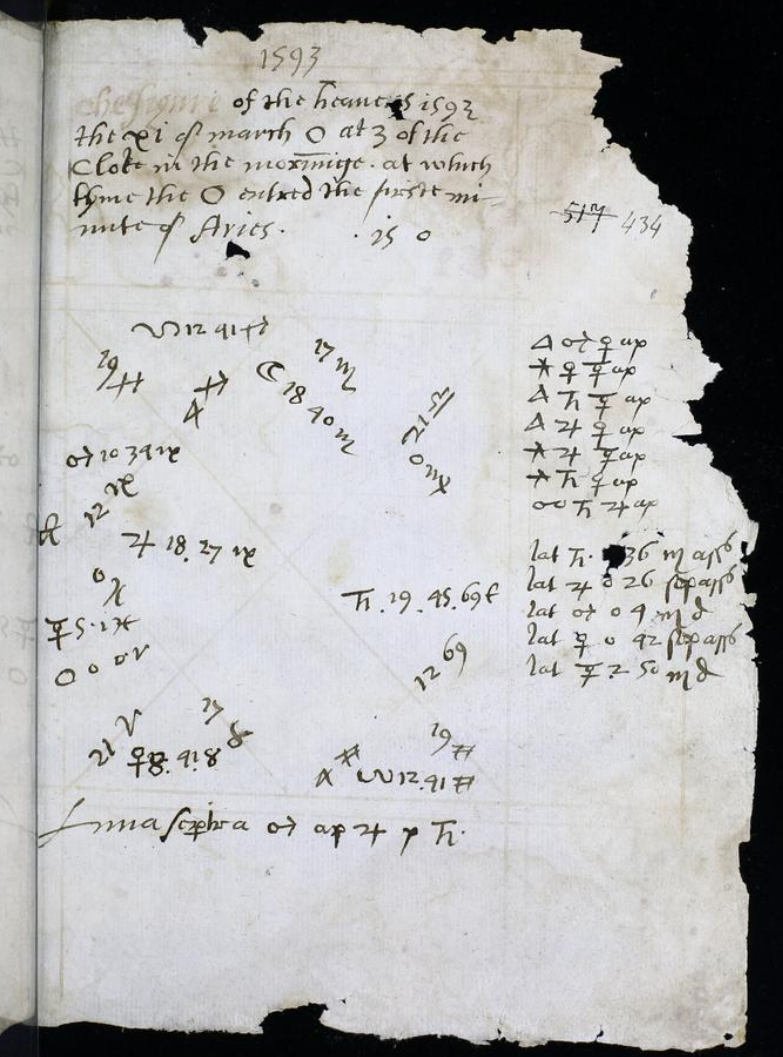 1593
the figure of the heavens 1593
the xi of march ☉ at 3 of the
Cloke in the morninge. at which
tyme the ☉ entred the firste mi-
nute of Aries. . 15 0
517 434
☋ 12 41 ♐
19 ♓
4 ♐
☾ 18 40 ♏
17 ♏
21 ♎
0 ♏
♂ 10 34 ♑
12 ♑
♃ 18. 27 ♑
0 ♓
☿ 5. 1 ♓
☉ 0 0 ♈
♄. 19. 45. ♋ ℞
12 ♋
21 ♈
♀ 8. 41 ♉
17 ♉
19 ♊
4 ♊
☊ 12. 41 ♊
△ ♂ ♀ ap
⚹ ♀ ☿ ap
△ ♄ ☿ ap
△ ♃ ♀ ap
⚹ ♃ ☿ ap
⚹ ♄ ♀ ap
☍ ♄ ♃ ap
lat ♄. 36 m ass
lat ♃ 0 26 sep ass
lat ♂ 0 4 m d
lat ♀ 0 42 sep ass
lat ☿. 2 50 m d
Luna sep̱ ♂ ap ♃ ♄.